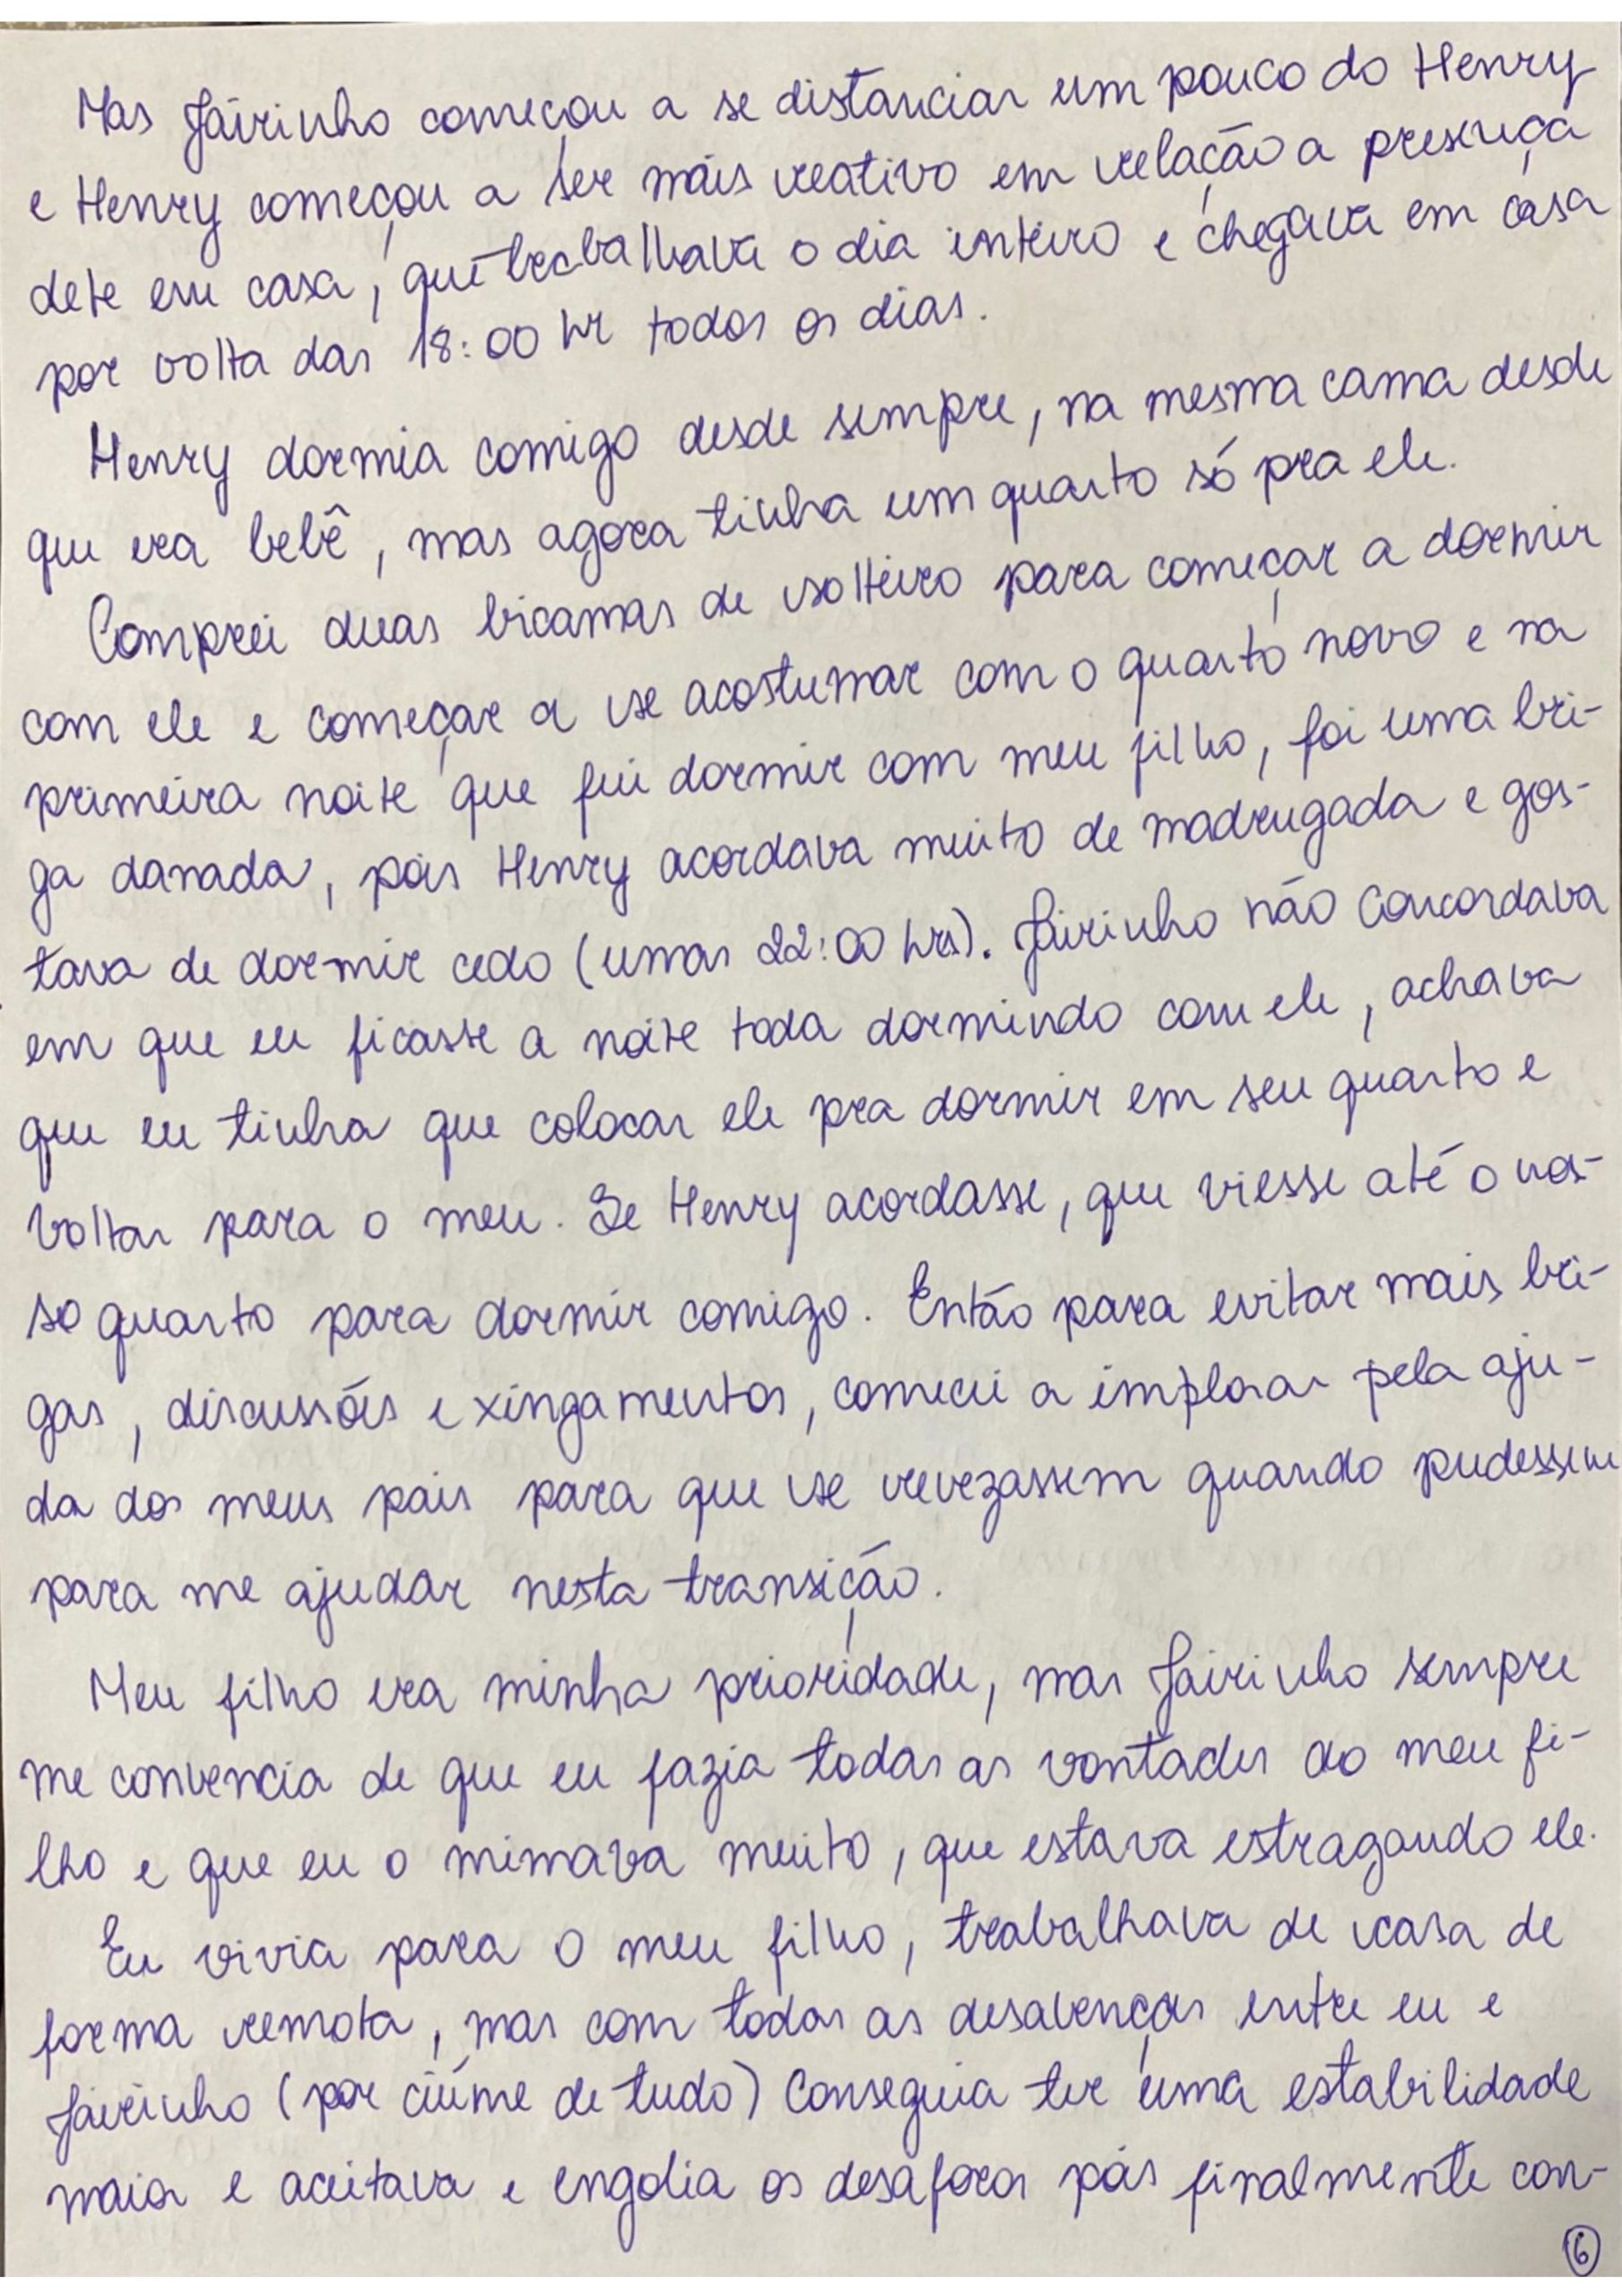 Mas Jairinho começou a se distanciar um pouco do Henry
e Henry começou a ser mais reativo em relação a presença
dele em casa, que trabalhava o dia inteiro e chegava em casa
por volta das 18:00 hr todos os dias.
Henry dormia comigo desde sempre, na mesma cama desde
que era bebê, mas agora tinha um quarto só pra ele.
Comprei duas bicamas de solteiro para começar a dormir
com ele e começar a se acostumar com o quarto novo e na
primeira noite que fui dormir com meu filho, foi uma bri-
ga danada, pois Henry acordava muito de madrugada e gos-
tava de dormir cedo (umas 22:00 hrs). Jairinho não concordava
em que eu ficasse a noite toda dormindo com ele, achava
que eu tinha que colocar ele pra dormir em seu quarto e
voltar para o meu. Se Henry acordasse, que viesse até o nos-
so quarto para dormir comigo. Então para evitar mais bri-
gas, discussões e xingamentos, comecei a implorar pela aju-
da dos meus pais para que se revezassem quando pudessem
para me ajudar nesta transição.
Meu filho era minha prioridade, mas Jairinho sempre
me convencia de que eu fazia todas as vontades do meu fi-
lho e que eu o mimava muito, que estava estragando ele.
Eu vivia para o meu filho, trabalhava de casa de
forma remota, mas com todas as desavenças entre eu e
Jairinho (por ciúme de tudo) conseguia ter uma estabilidade
maior e aceitava e engolia os desaforos pois finalmente con-
6